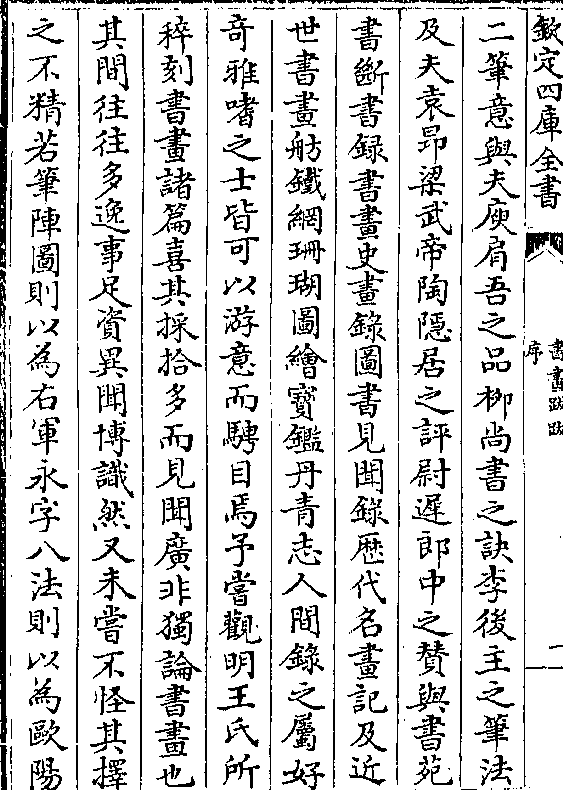 欽定四庫全書
書畫跋跋
序
二筆意與夫庾肩吾之品栁尚書之訣李後主之筆法
及夫袁昂梁武帝陶隠居之評尉遲郎中之賛與書苑
書斷書録書畫史畫錄圖書見聞錄歴代名畫記及近
世書畫舫鐵網珊瑚圖繪寳鑑丹青志人間錄之屬好
竒雅嗜之士皆可以游意而騁目焉予嘗觀明王氏所
稡刻書畫諸篇喜其採拾多而見聞廣非獨論書畫也
其間往往多逸事足資異聞博識然又未嘗不怪其擇
之不精若筆陣圖則以為右軍永字八法則以為歐陽